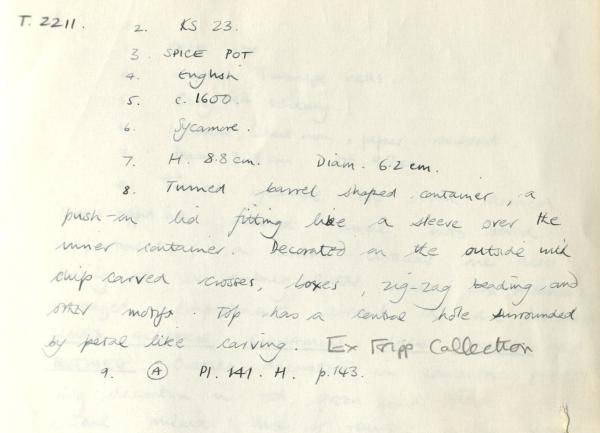 T. 2211.
2. KS 23.
3. SPICE POT
4. English
5. c. 1600.
6. Sycamore.
7. H. 8.8 cm. Diam. 6.2 cm.
8. Turned barrel shaped container, a
push-on lid fitting like a sleeve over the
inner container. Decorated on the outside with
chip carved crosses, boxes, zig-zag beading and
other motifs. Top has a central hole surrounded
by petal like carving. Ex Tripp Collection
9. A Pl. 141. H. p. 143.